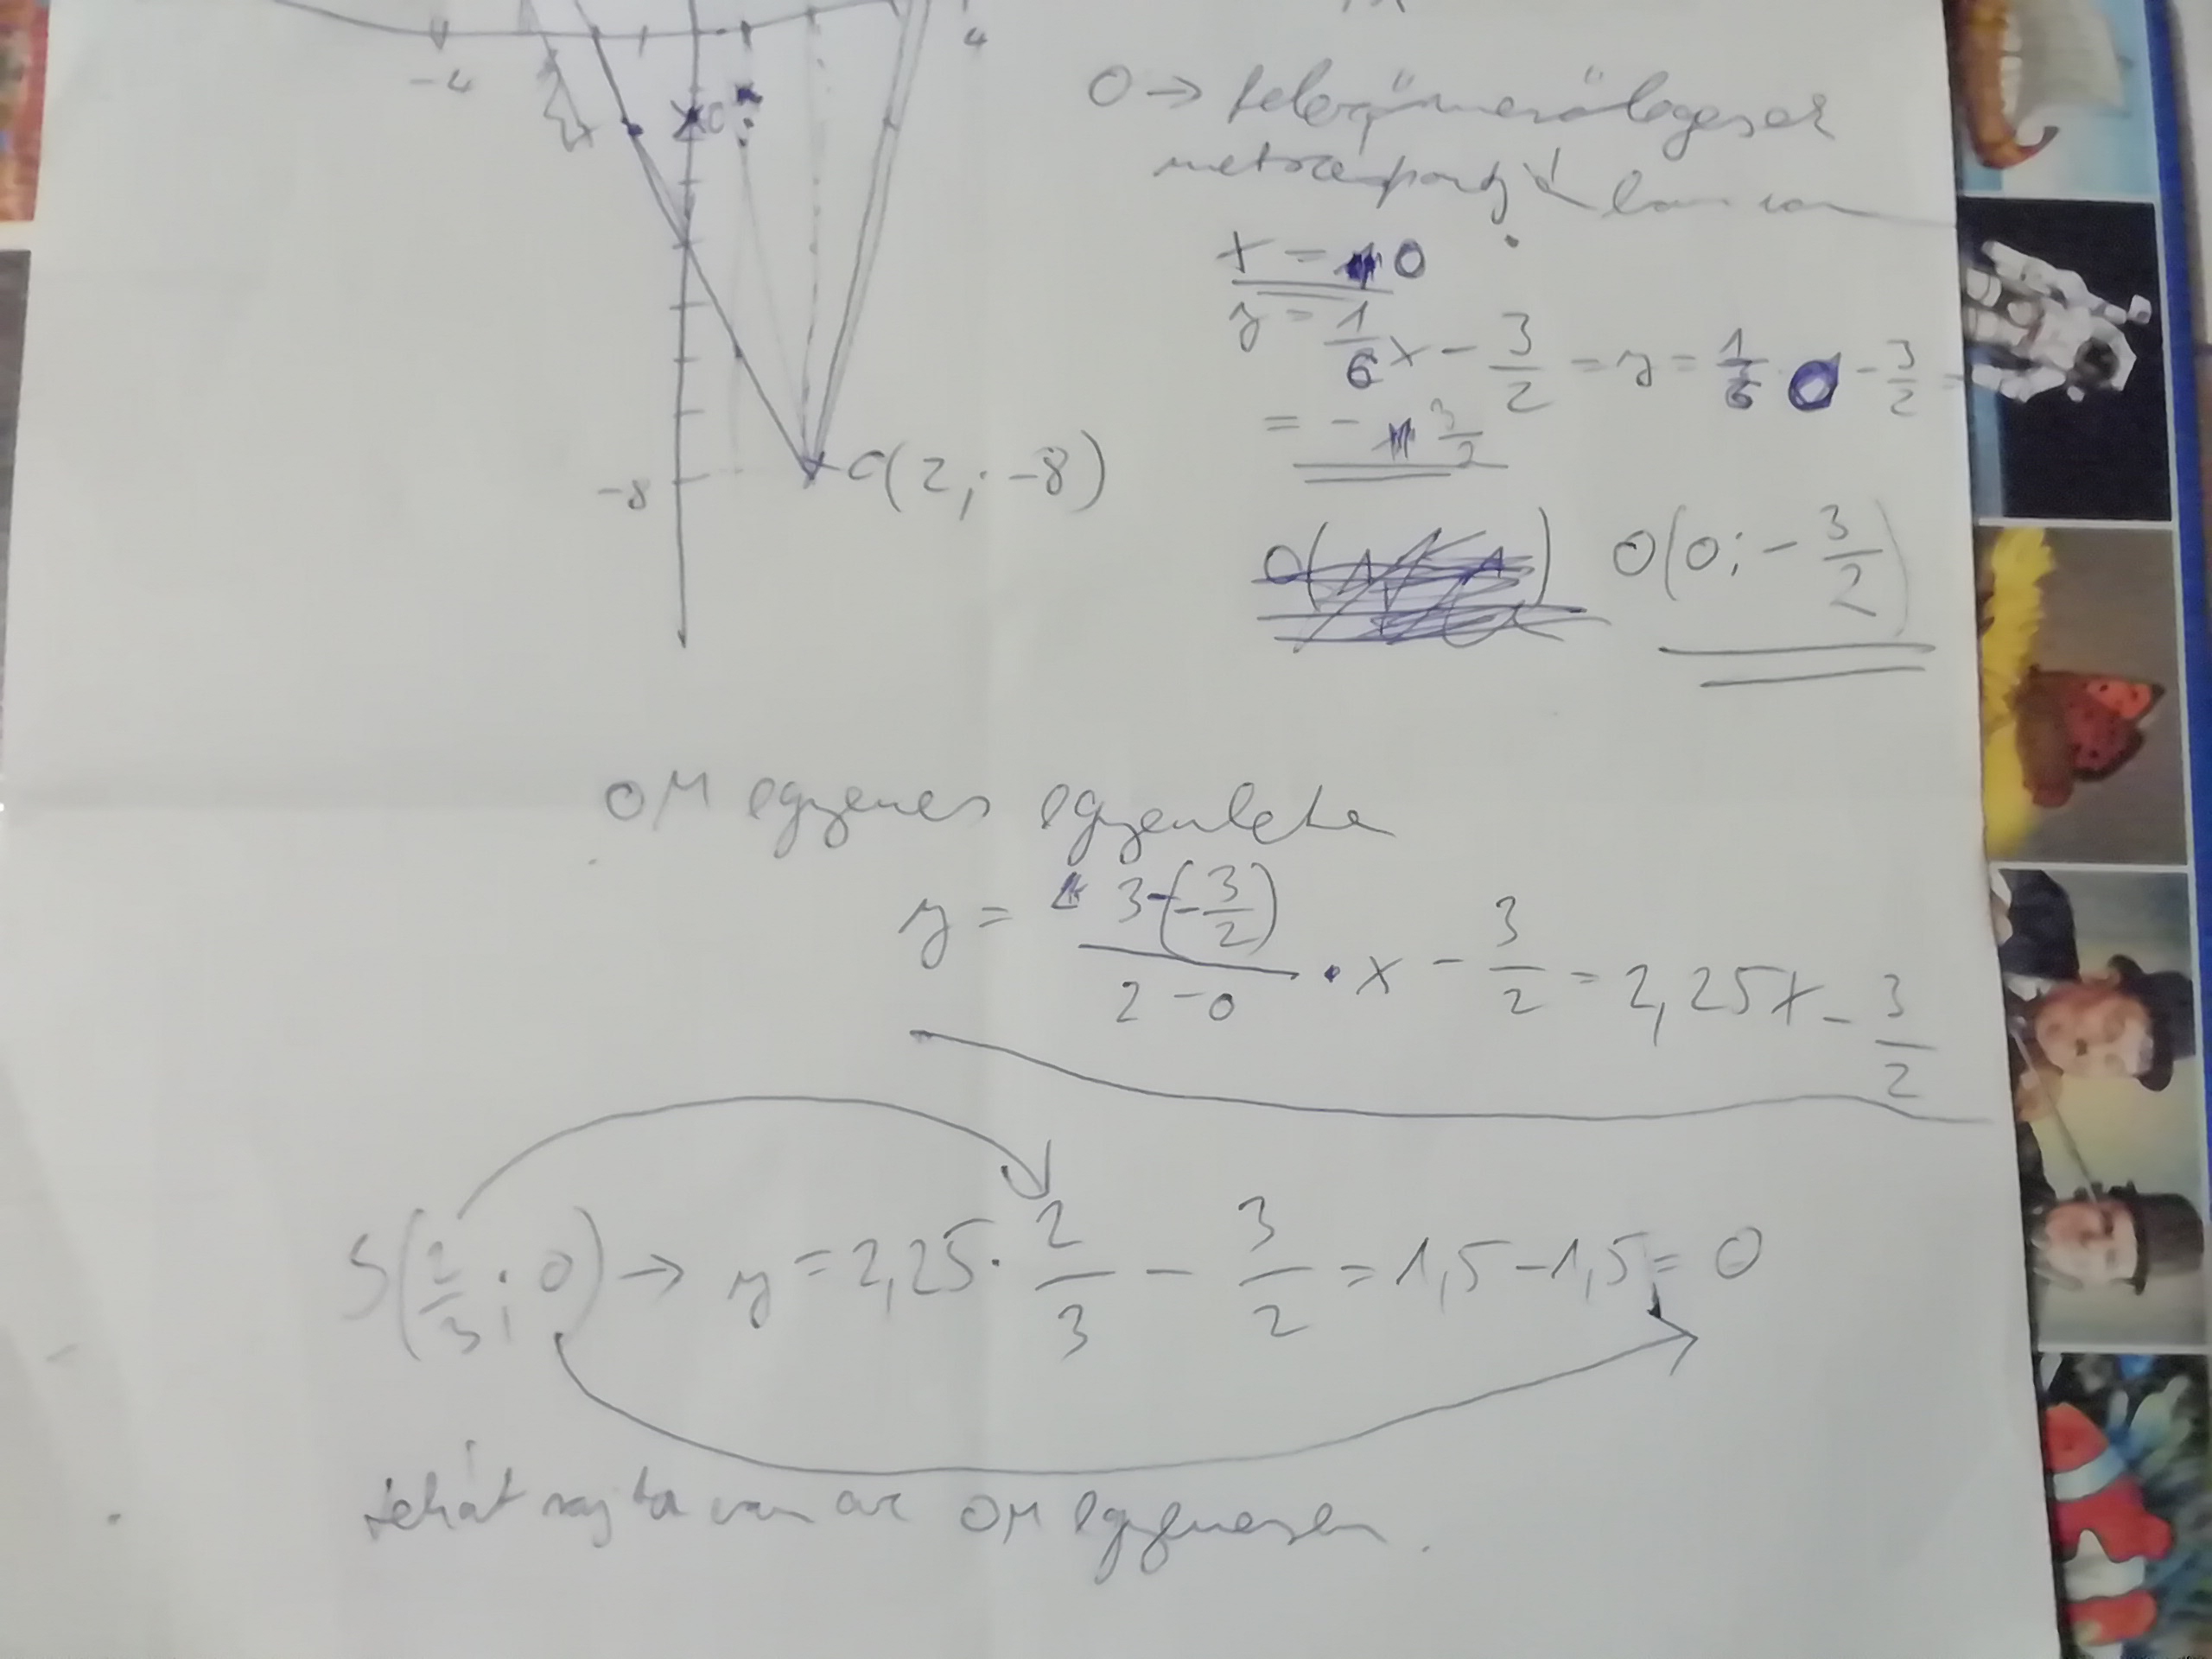 -4
4
O → felezőmerőlegesek
metszéspontjában van
x = 0
y = 1/6 x - 3/2 = y = 1/6 · 0 - 3/2 =
= - 3/2
-8
C(2; -8)
O(0; - 3/2)
OM egyenes egyenlete
y = (3-(-3/2))/(2-0) · x - 3/2 = 2,25x - 3/2
S(2/3; 0) → y = 2,25 · 2/3 - 3/2 = 1,5 - 1,5 = 0
tehát rajta van az OM egyenesen.